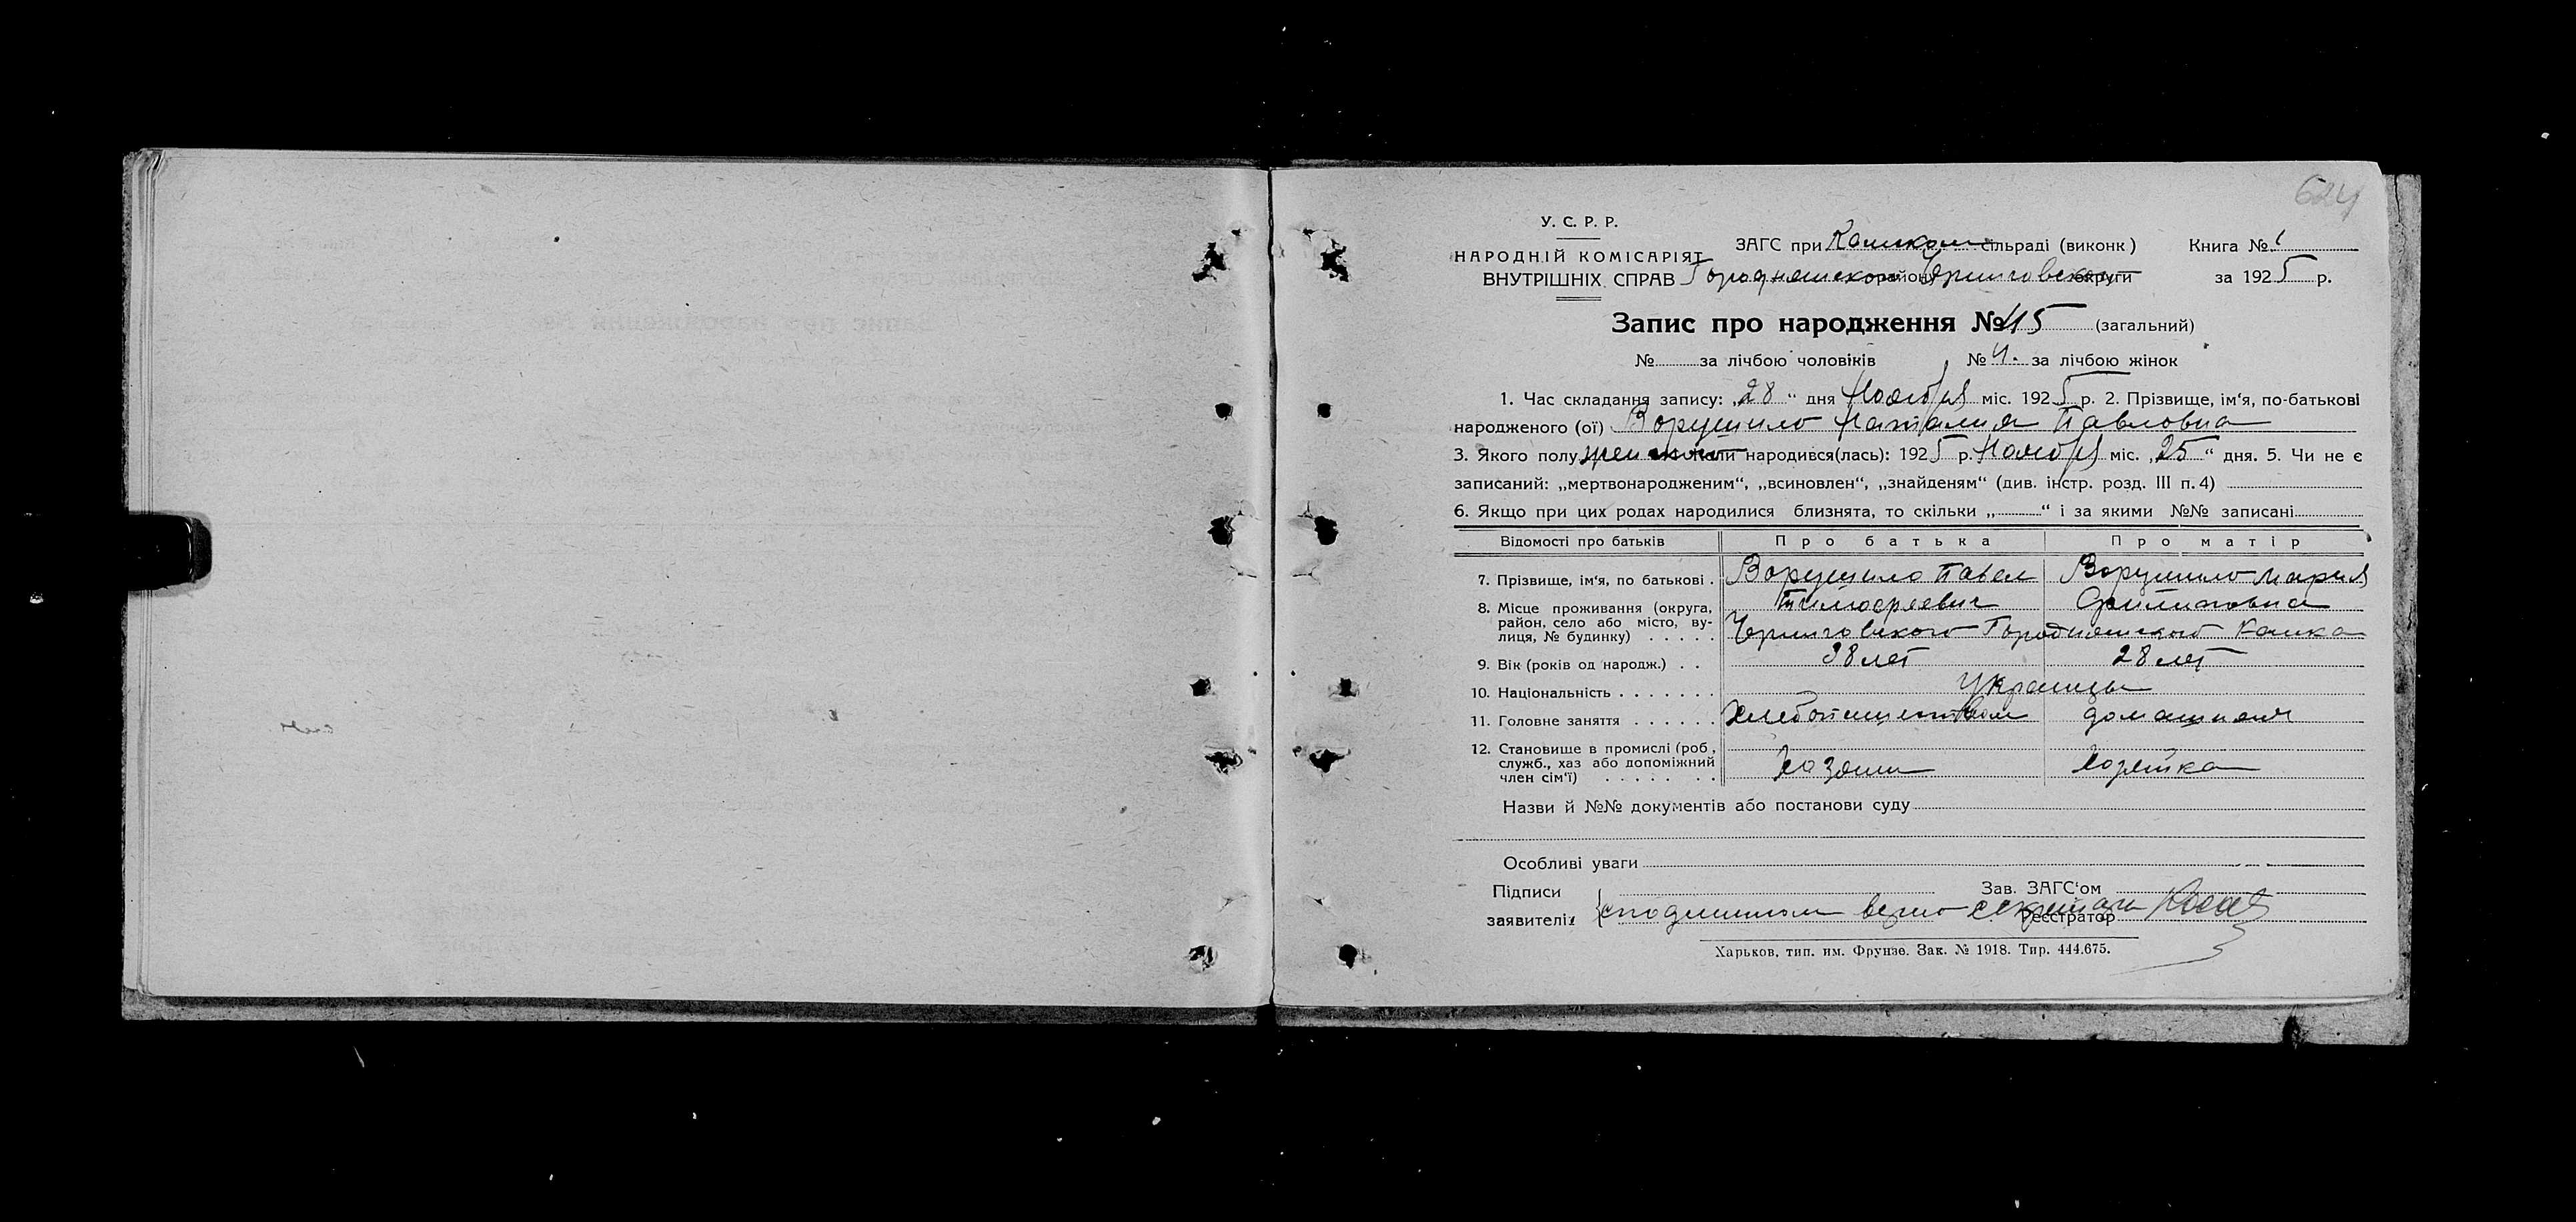 624
У. С. Р. Р.
НАРОДНІЙ КОМІСАРІЯТ
ВНУТРІШНІХ СПРАВ
ЗАГС при сільраді (виконк)
району Черниговской округи
Книга № 1
за 1925 р.
Запис про народження № 45 (загальний)
№ за лічбою чоловіків № 4. за лічбою жінок
1. Час складання запису: „28“ дня Ноября міс. 1925 р. 2. Прізвище, ім‘я, по-батькові
народженого (ої) Ворушило Наталия Павловна
3. Якого полу женской народився(лась): 1925 р. Ноября міс. „25“ дня. 5. Чи не є
записаний: „мертвонародженим“, „всиновлен“, „знайденям“ (див. інстр. розд. III п. 4)
6. Якщо при цих родах народилися близнята, то скільки „ “ і за якими №№ записані
Відомості про батьків Про батька Про матір
7. Прізвище, ім‘я, по батькові . Ворушило Павел Ворушило Мария
Тимофеевич Филиповна
8. Місце проживання (округа,
район, село або місто, ву-
лиця, № будинку) . . . . . Черниговского Городнянского
9. Вік (років од народж.) . . 38 лет 28 лет
10. Національність . . . . . . . Украинцы
11. Головне заняття . . . . . . Хлебопашеством домашняя
12. Становище в промислі (роб,
служб., хаз або допоміжний
член сім‘ї) . . . . . . . Хозяин Хозяйка
Назви й №№ документів або постанови суду
Особливі уваги
Підписи
заявителів
Зав. ЗАГС‘ом
с подлинным верно секретарь
Реєстратор
Харьков, тип. им. Фрунзе. Зак. № 1918. Тир. 444.675.